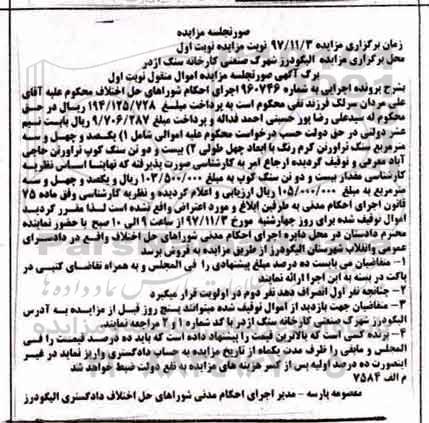 صورتجلسه مزایده
زمان برگزاری مزایده ۹۷/۱۱/۳ نوبت مزایده نوبت اول
محل برگزاری مزایده الیگودرز شهرک صنعتی کارخانه سنگ اژدر
برگ آگهی صورتجلسه مزایده اموال منقول نوبت اول
بشرح پرونده اجرایی به شماره ۹۶۰۷۴۶ اجرای احکام شوراهای حل اختلاف محکوم علیه آقای
علی مردان سرلک فرزند تقی محکوم است به پرداخت مبلغ ۱۹۴/۱۲۵/۷۲۸ ریال در حق
محکوم له سیدعلی رضا پور حسینی احمد فداله و پرداخت مبلغ ۹/۷۰۶/۲۸۷ ریال بابت نیم
عشر دولتی در حق دولت حسب درخواست محکوم علیه اموالی شامل ۱) یکصد و چهل و سه
مترمربع سنگ تراورتن کرم رنگ با ابعاد چهل طولی ۲) بیست و دو تن سنگ کوپ تراورتن حاجی
آباد معرفی و توقیف گردیده ارجاع امر به کارشناسی صورت پذیرفته که نهایتا اساس نظریه
کارشناسی مقدار بیست و دو تن سنگ کوپ به مبلغ ۱۰۳/۵۰۰/۰۰۰ ریال و یکصد و چهل و سه
مترمربع به مبلغ ۱۰۵/۰۰۰/۰۰۰ ریال ارزیابی و اعلام گردیده و نظریه کارشناسی وفق ماده ۷۵
قانون اجرای احکام مدنی به طرفین ابلاغ و مورد اعتراض واقع نشده است لذا مقرر گردید
اموال توقیف شده برای روز چهارشنبه مورخ ۹۷/۱۱/۳ از ساعت ۹ الی ۱۰ صبح با حضور نماینده
محترم دادستان در محل دایره اجرای احکام مدنی شوراهای حل اختلاف واقع در دادسرای
عمومی وانقلاب شهرستان الیگودرز از طریق مزایده به فروش برسد
۱- متقاضیان می بایست ده درصد مبلغ پیشنهادی را فی المجلس و به همراه تقاضای کتبی در
پاکت در بسته به این اجرا ارائه نمایند
۲- چنانچه نفر اول انصراف دهد نفر دوم در اولویت قرار میگیرد
۳- متقاضیان جهت بازدید از اموال توقیف شده میتوانند پنج روز قبل از مزایده به آدرس
الیگودرز شهرک صنعتی کارخانه سنگ اژدر با کد شماره ۱ و ۲ مراجعه نمایند.
۴- برنده کسی است که بالاترین قیمت را پیشنهاد داده است که باید ده درصد قیمت را فی
المجلس و مابقی را ظرف مدت یکماه از تاریخ مزایده به حساب دادگستری واریز نماید در غیر
اینصورت ده درصد اولیه پس از کسر هزینه های مزایده به نفع دولت ضبط خواهد شد
م الف ۷۵۸۴
معصومه پارسه - مدیر اجرای احکام مدنی شوراهای حل اختلاف دادگستری الیگودرز